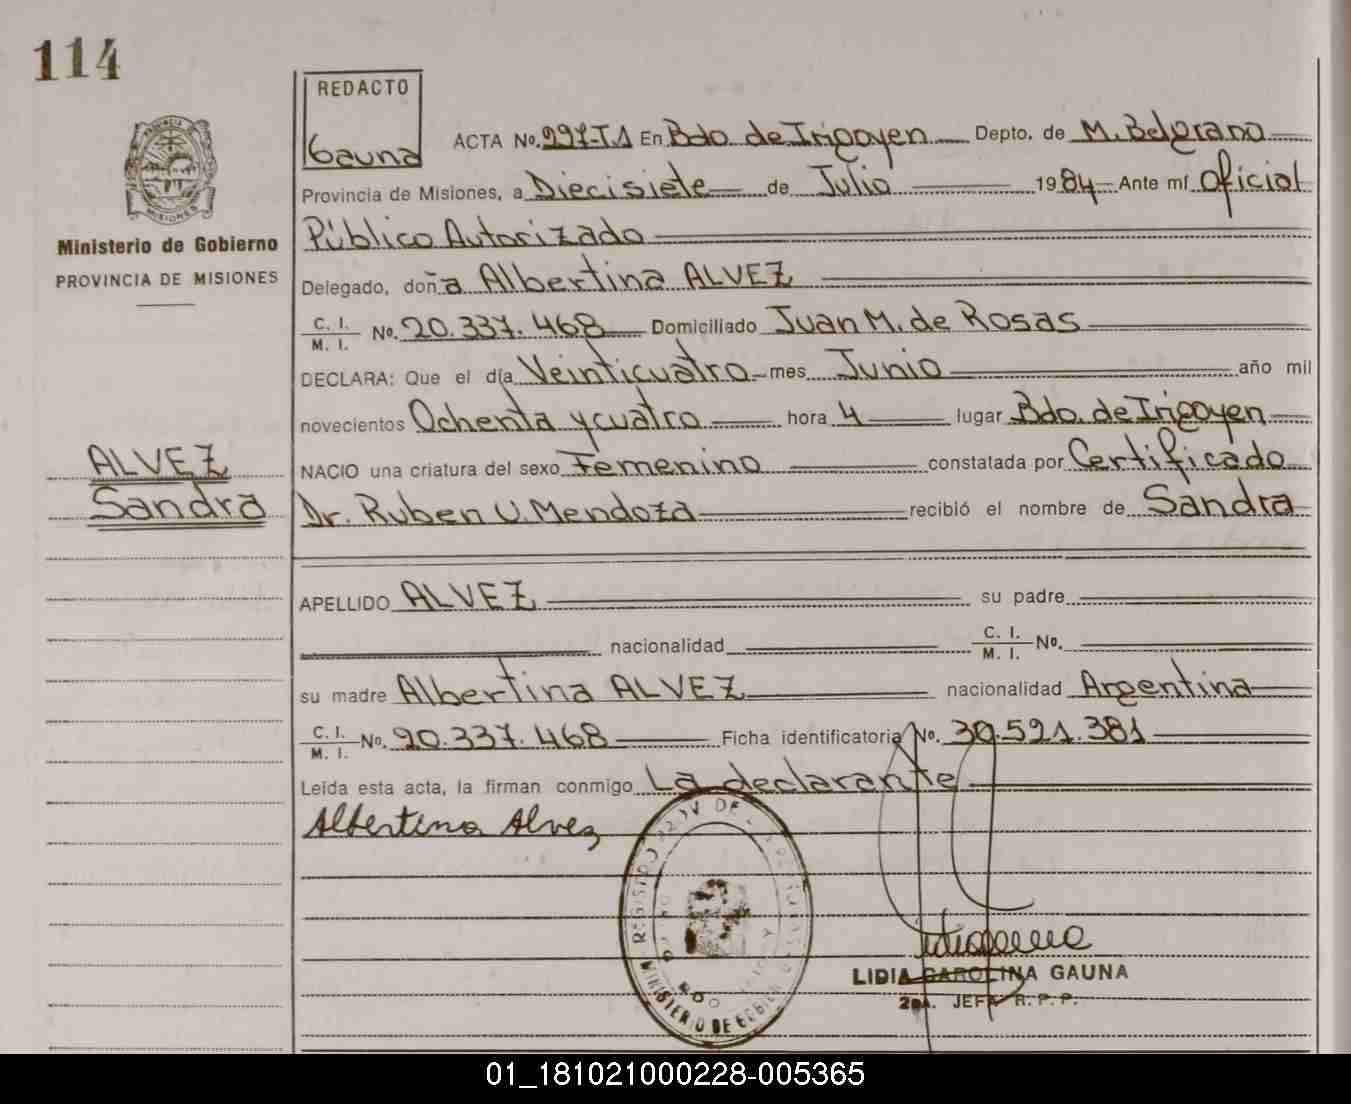 114
REDACTO
Gauna
ACTA No. 297-T.1 En Bdo. de Irigoyen Depto. de M. Belgrano
Provincia de Misiones, a Diecisiete de Julio 1984 Ante mí Oficial
Público Autorizado
Ministerio de Gobierno
PROVINCIA DE MISIONES
Delegado, doña Albertina ALVEZ
C. I.
M. I. No. 20.337.468 Domiciliado Juan M. de Rosas
DECLARA: Que el día Veinticuatro mes Junio año mil
novecientos Ochenta y cuatro hora 4 lugar Bdo. de Irigoyen
ALVEZ
Sandra
NACIO una criatura del sexo Femenino constatada por Certificado
Dr. Ruben U. Mendoza recibió el nombre de Sandra
APELLIDO ALVEZ su padre
nacionalidad C. I.
M. I. No.
su madre Albertina ALVEZ nacionalidad Argentina
C. I.
M. I. No. 20.337.468 Ficha identificatoria No. 30.521.381
Leída esta acta, la firman conmigo La declarante
Albertina Alvez
REGISTRO PROV DE
MINISTERIO DE GOBIERNO
LIDIA CAROLINA GAUNA
2da. JEFA R. P. P.
01_181021000228-005365